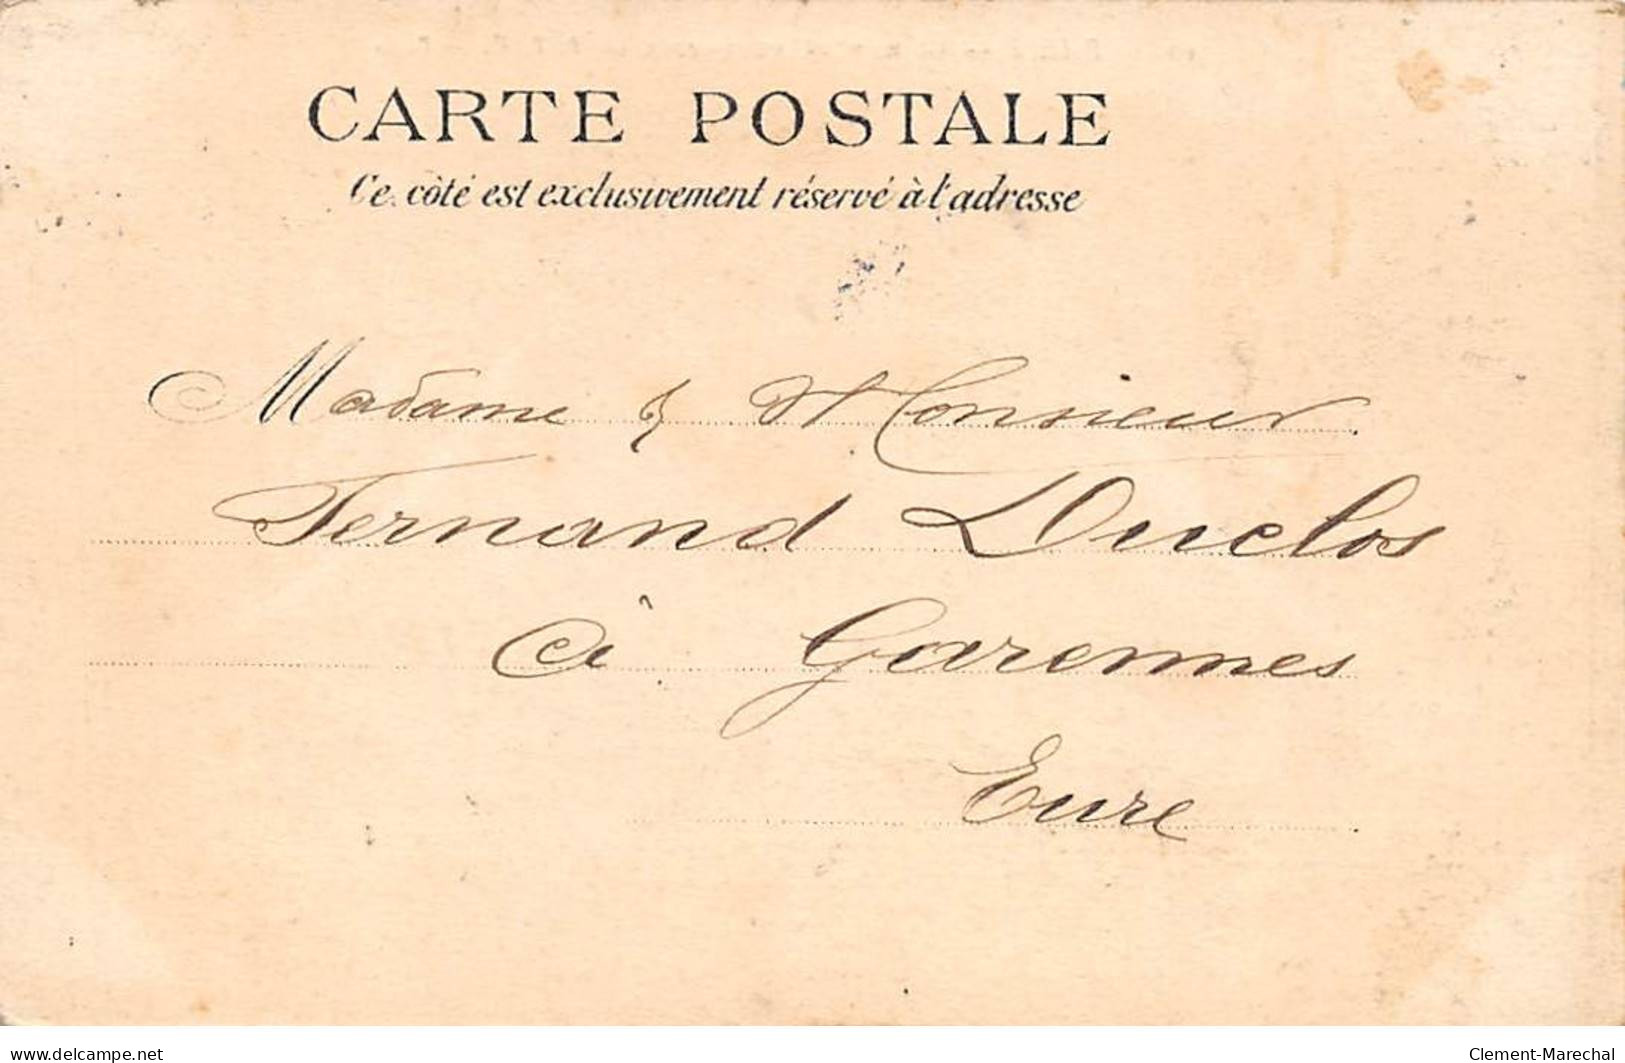 CARTE POSTALE
Ce côté est exclusivement réservé à l'adresse
Madame & Monsieur
Fernand Duclos
à Garennes
Eure
www.delcampe.net
Clement-Marechal